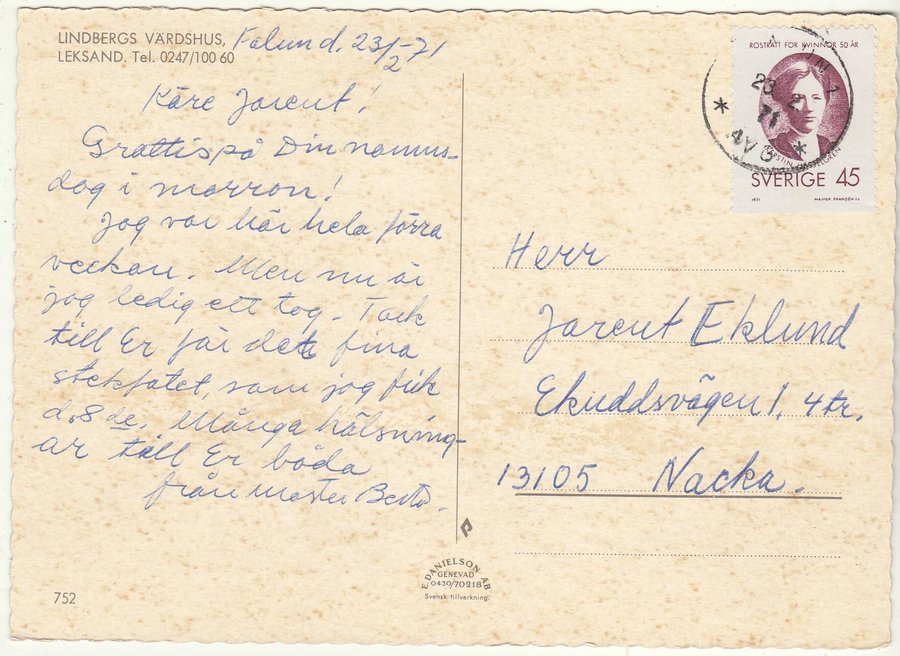 LINDBERGS VÄRDSHUS, Falun d. 23/2-71
LEKSAND. Tel. 0247/100 60
Käre Jarent!
Grattis på Din namns-
dag i morron!
Jag var här hela förra
veckan. Men nu är
jag ledig ett tag. Tack
till Er för det fina
stekfatet, som jag fick
d. 8 de. Många hälsning-
ar till Er båda
från moster Berta.
RÖSTRÄTT FÖR KVINNOR 50 ÅR
23 2
71
KERSTIN HESSELGREN
SVERIGE 45
1971 MAJVOR FRANZÉN SC
Herr
Jarent Eklund
Ekuddsvägen 1, 4 tr.
13105 Nacka.
E. DANIELSON AB
GENEVAD
0430/70218
Svensk tillverkning.
752